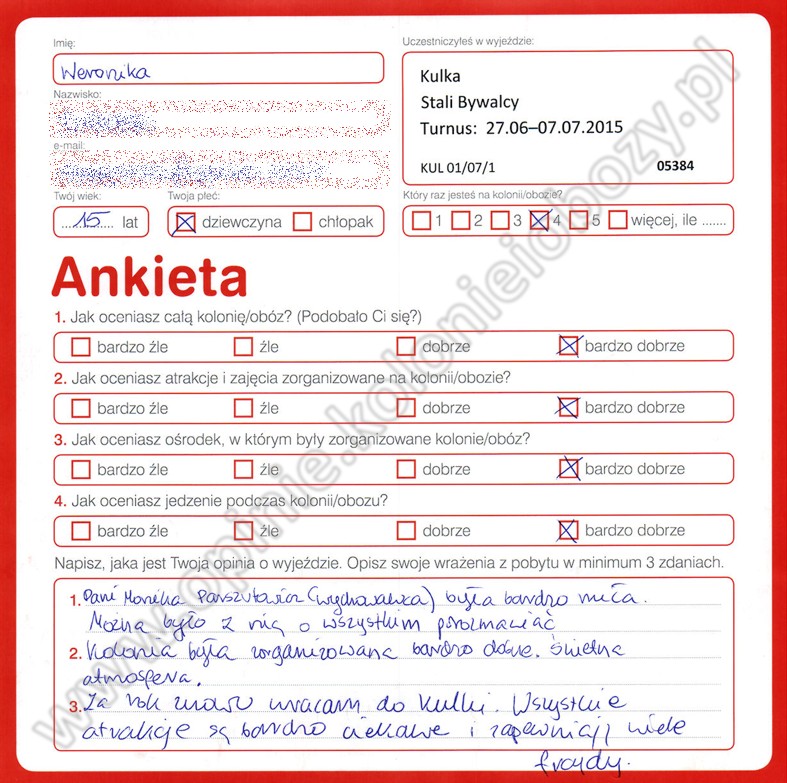 Imię:
Weronika
Nazwisko:
e-mail:
Twój wiek:
15 lat
Twoja płeć:
dziewczyna chłopak
Uczestniczyłeś w wyjeździe:
Kulka
Stali Bywalcy
Turnus: 27.06–07.07.2015
KUL 01/07/1 05384
Który raz jesteś na kolonii/obozie?
1 2 3 4 5 więcej, ile .......
Ankieta
1. Jak oceniasz całą kolonię/obóz? (Podobało Ci się?)
bardzo źle źle dobrze bardzo dobrze
2. Jak oceniasz atrakcje i zajęcia zorganizowane na kolonii/obozie?
bardzo źle źle dobrze bardzo dobrze
3. Jak oceniasz ośrodek, w którym byly zorganizowane kolonie/obóz?
bardzo źle źle dobrze bardzo dobrze
4. Jak oceniasz jedzenie podczas kolonii/obozu?
bardzo źle źle dobrze bardzo dobrze
Napisz, jaka jest Twoja opinia o wyjeździe. Opisz swoje wrażenia z pobytu w minimum 3 zdaniach.
1. Pani Monika (wychowawca) była bardzo miła.
Można było z nią o wszystkim porozmawiać
2. Kolonia była zorganizowana bardzo dobrze. świetna
atmosfera.
3. Za rok znowu wracam do Kulki. Wszystkie
atrakcje są bardzo ciekawe i zapewniają wiele
frajdy.
www.opinie.kolonieiobozy.pl